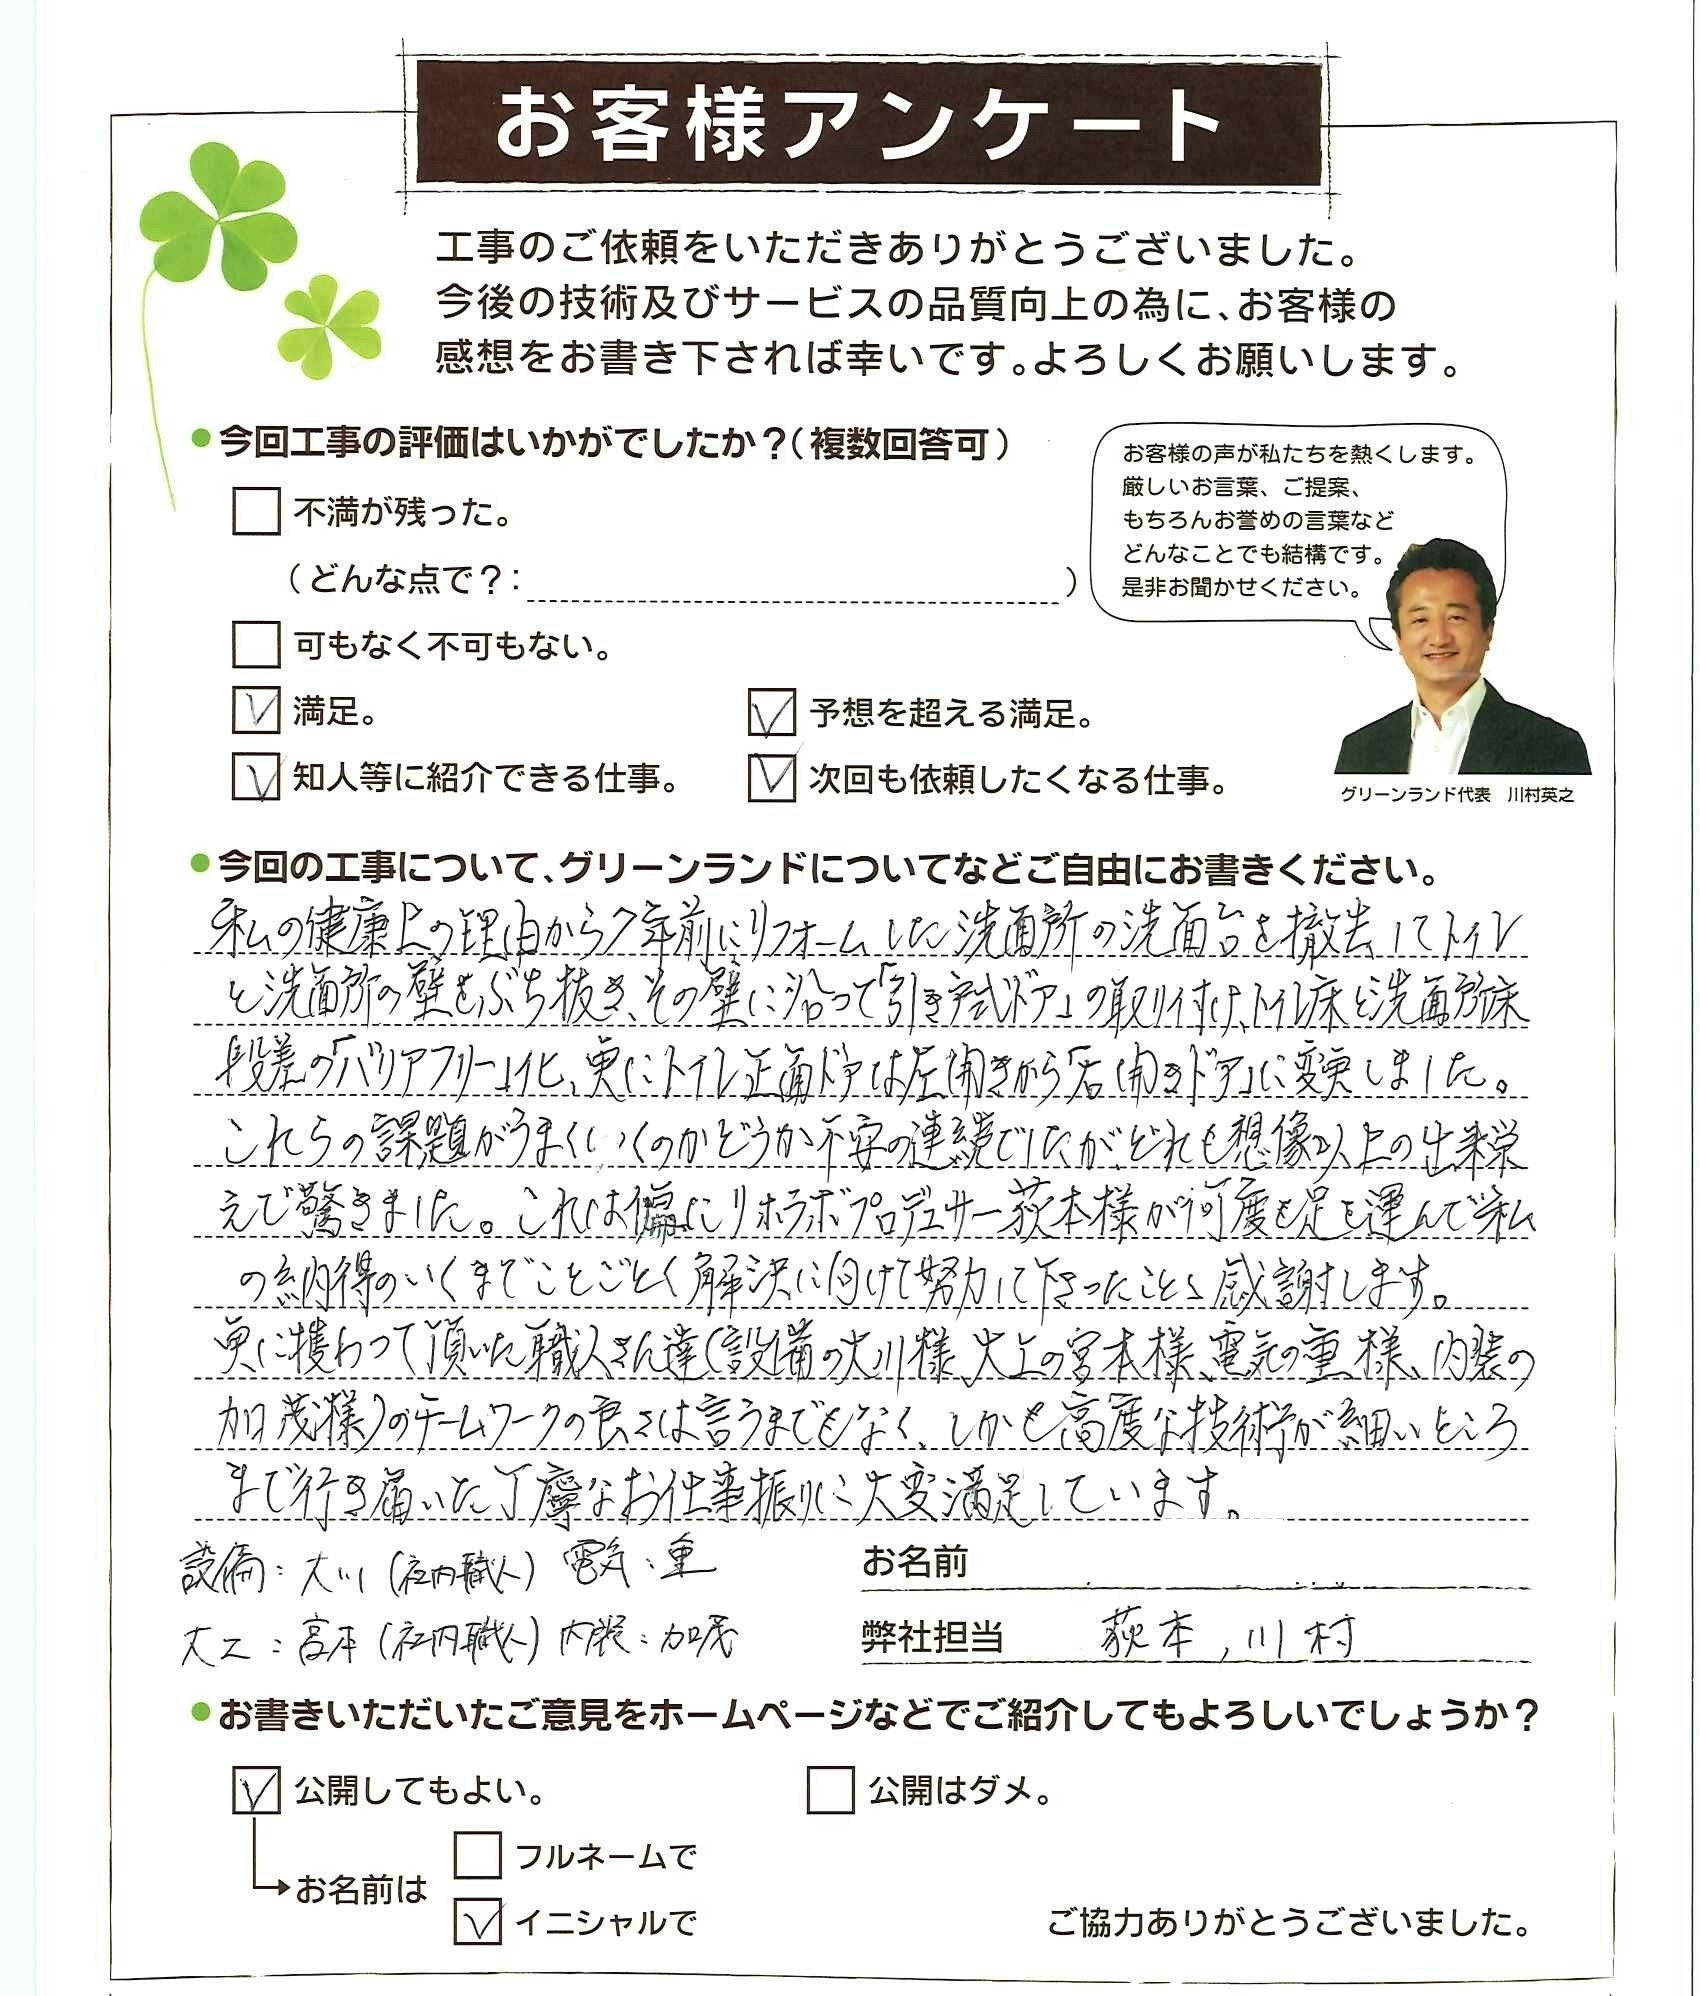 お客様アンケート
工事のご依頼をいただきありがとうございました。
今後の技術及びサービスの品質向上の為に、お客様の
感想をお書き下されば幸いです。よろしくお願いします。
●今回工事の評価はいかがでしたか？（複数回答可）
不満が残った。
（どんな点で？：　）
可もなく不可もない。
満足。
予想を超える満足。
知人等に紹介できる仕事。
次回も依頼したくなる仕事。
お客様の声が私たちを熱くします。
厳しいお言葉、ご提案、
もちろんお誉めの言葉など
どんなことでも結構です。
是非お聞かせください。
グリーンランド代表　川村英之
●今回の工事について、グリーンランドについてなどご自由にお書きください。
私の健康上の理由から7年前にリフォームした洗面所の洗面台を撤去してトイレ
と洗面所の壁をぶち抜き、その壁に沿って「引き戸式ドア」の取り付け、トイレ床と洗面所床
段差の「バリアフリー」化、更にトイレ正面ドアは左開きから「右開きドア」に変更しました。
これらの課題がうまくいくのかどうか不安の連続でしたが、どれも想像以上の出来栄
えで驚きました。これは偏にリホラボプロデュサー荻本様が何度も足を運んで私
の納得のいくまでことごとく解決に向けて努力して下さったことと感謝します。
更に携わって頂いた職人さん達（設備の大川様、大工の宮本様、電気の重様、内装の
加茂様）のチームワークの良さは言うまでもなく、しかも高度な技術が細いところ
まで行き届いた丁寧なお仕事振りに大変満足しています。
設備：大川（社内職人）　電気：重
大工：宮本（社内職人）　内装：加茂
お名前
弊社担当　荻本，川村
●お書きいただいたご意見をホームページなどでご紹介してもよろしいでしょうか？
公開してもよい。
公開はダメ。
お名前は
フルネームで
イニシャルで
ご協力ありがとうございました。